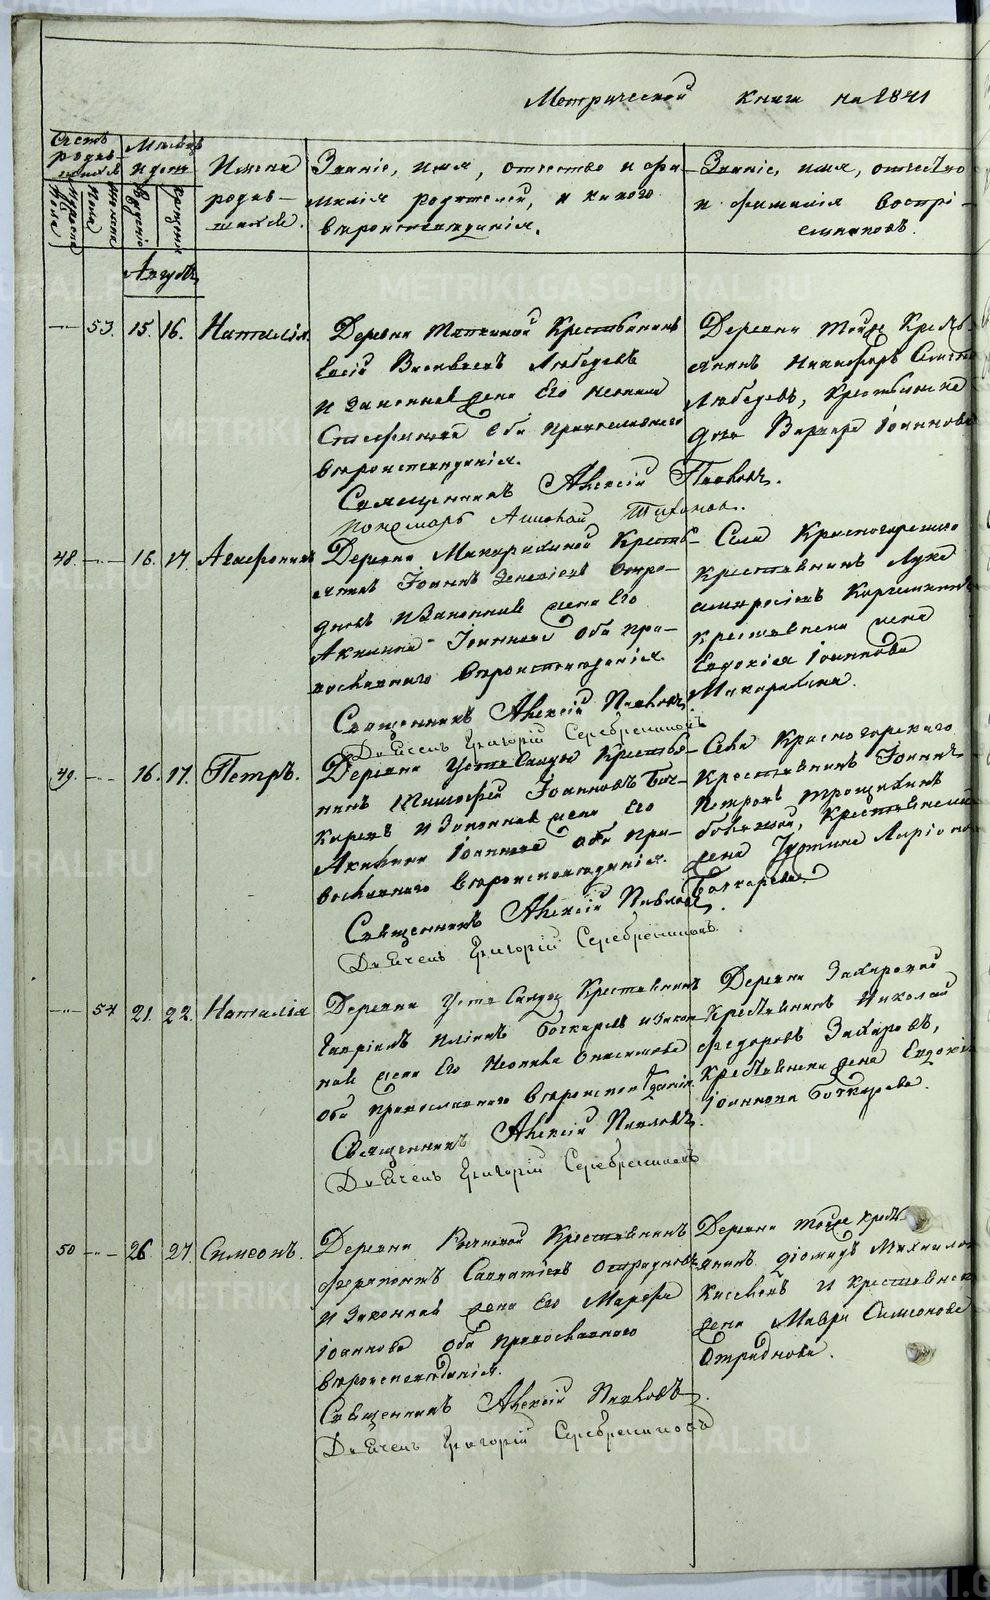 Метрической книги на 1841
Счетъ родив-шихся
Мѣсяцъ и день
Имена родив-шихся.
Званіе, имя, отчество и фа-
милія родителей, и какого
вѣроисповѣданія.
Званіе, имя, отчество
и фамилія воспрі-
емниковъ.
мужеска пола
женска
рожденія
крещенія
Августъ
53. 15. 16. Наталія.
Деревни Крестьянинъ
Васильевъ Лебедевъ
и законная жена Его
Стефанова Оба православнаго
вѣроисповѣданія.
Священникъ Алексій Павловъ.
Пономарь Тихоновъ.
Деревни тойже Кресть-
янинъ Никифоръ
Лебедевъ, крестьянска
дочь Варвара Іоаннова
48. 16. 17. Агафоникъ
Деревни Макарихиной Кресть-
янинъ Іоаннъ Отра-
дновъ и Законная жена Его
Акилина Іоаннова Оба пра-
вославнаго вѣроисповѣданія.
Священникъ Алексій Павловъ.
Дьячекъ Григорій Серебрениковъ
Села Красногорскаго
крестьянинъ Лука
крестьянска жена
Евдокія Іоаннова
Макарихина.
49. 16. 17. Петръ.
Деревни Усть Санды Крестья-
нинъ Тимофей Іоанновъ Боч-
каревъ и Законная жена Его
Акилина Іоаннова Оба пра-
вославнаго вѣроисповѣданія.
Священникъ Алексій Павловъ.
Дьячекъ Григорій Серебрениковъ.
Села Красногорскаго
Крестьянинъ Іоаннъ
Петровъ
Крестьянска
жена Іустина Ларіонова
Бочкарева
54 21. 22. Наталія
Деревни Усть Санды Крестьянинъ
Гавріилъ Иліинъ Бочкаревъ и Закон-
ная жена Его Неонила Онисимова
Оба православнаго вѣроисповѣданія.
Священникъ Алексій Павловъ.
Дьячекъ Григорій Серебрениковъ
Деревни Захаровой
Крестьянинъ Николай
Федоровъ Захаровъ,
Крестьянска жена Евдокія
Іоаннова Бочкарева.
50 26 27 Симеонъ.
Деревни Крестьянинъ
Ферапонтъ Савватіевъ Отрадновъ
и Законная жена Его Марфа
Іоаннова Оба православнаго
вѣроисповѣданія.
Священникъ Алексій Павловъ.
Дьячекъ Григорій Серебрениковъ
Деревни тойже Кресть-
янинъ Діомидъ Михайловъ
и крестьянска
жена Мавра Симеонова
Отраднова.
METRIKI.GASO-URAL.RU